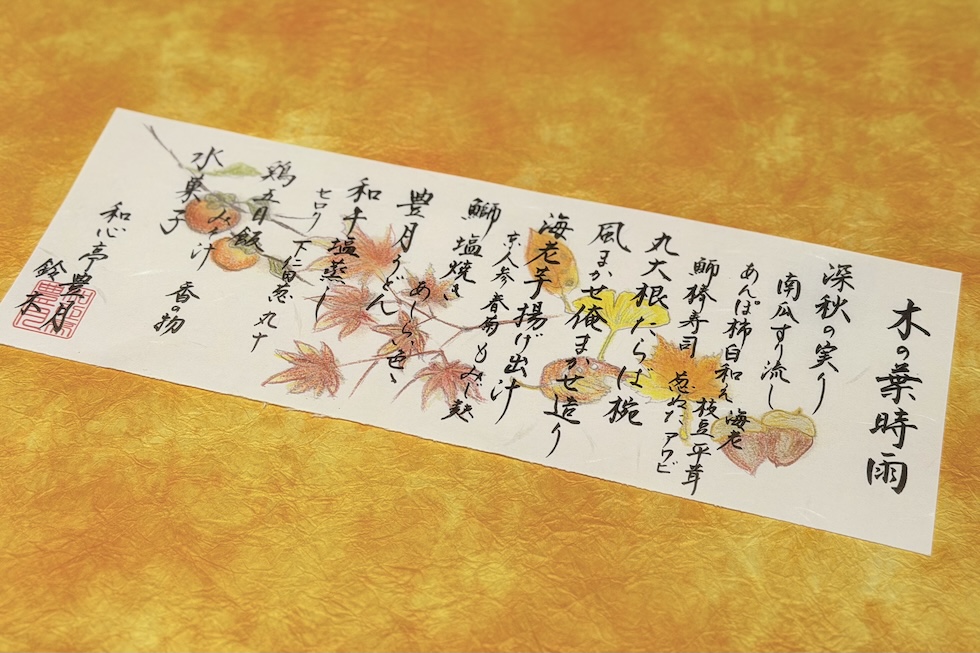 木の葉時雨
深秋の実り
南瓜すり流し
あんぽ柿白和え 海老
鰤棒寿司 枝豆 平茸
葱ぬた アワビ
丸大根たらば椀
風まかせ俺まかせ造り
海老芋揚げ出汁
鰤塩焼き
京人参 春菊 もみじ麸
豊月うどん
あしらい色々
和牛塩蒸し
セロリ 下仁田葱 丸十
鶏五目飯
香の物
水菓子
和心亭豊月
鈴木